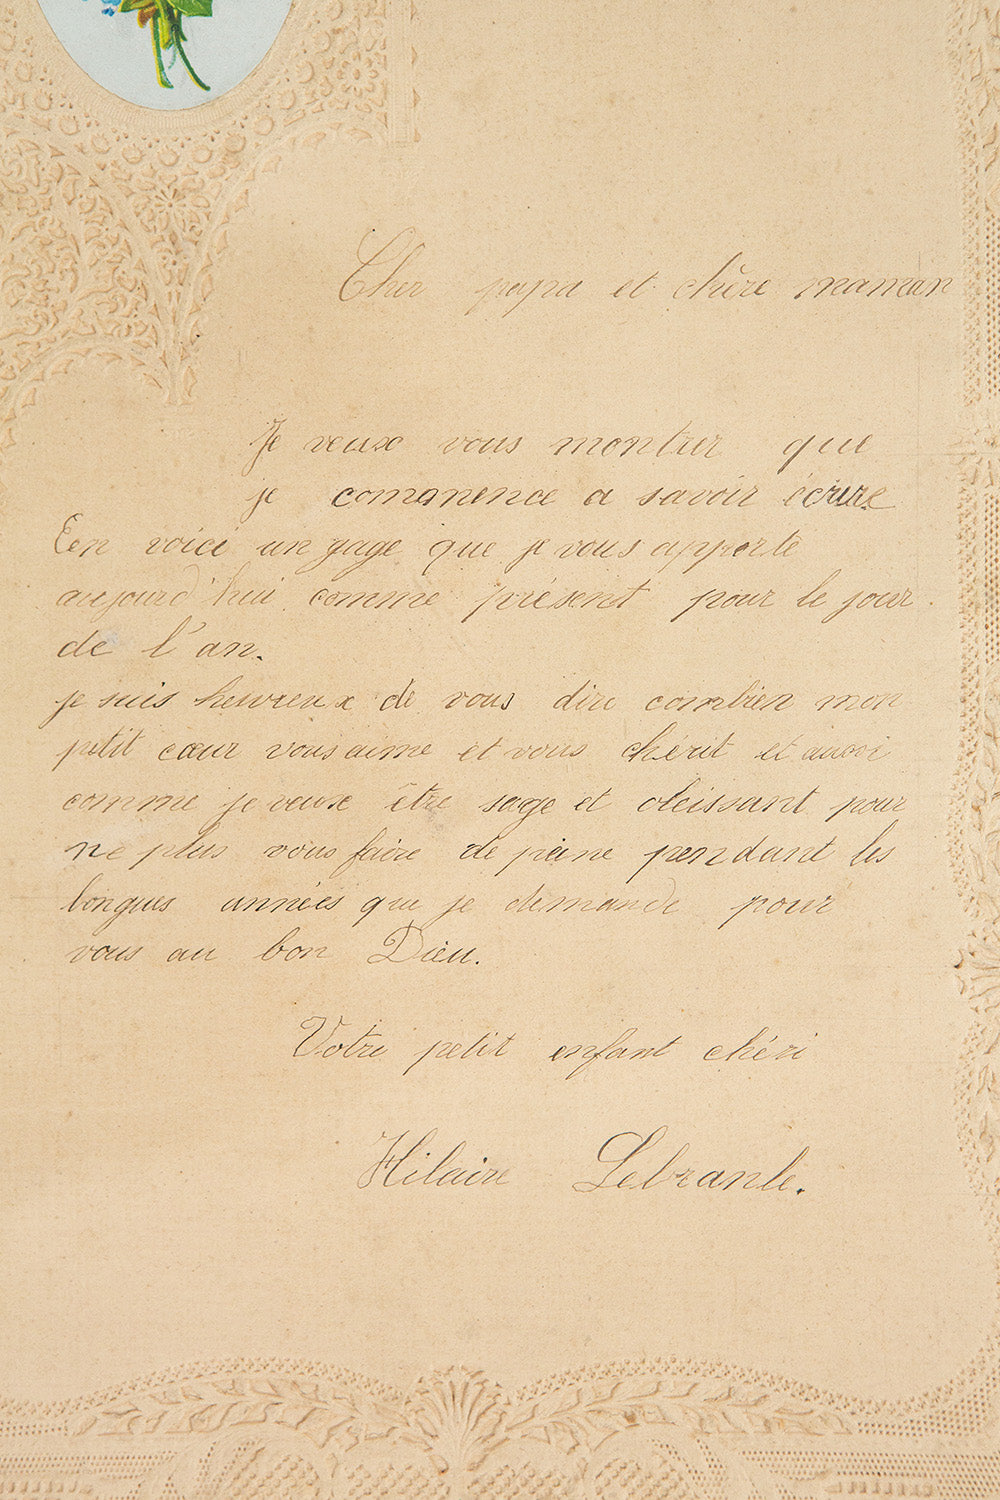 Cher papa et chère maman
Je veux vous montrer que
je commence a savoir écrire
En voici un gage que je vous apporte
aujourd'hui comme présent pour le jour
de l'an.
je suis heureux de vous dire combien mon
petit cœur vous aime et vous chérit et aussi
comme je veux être sage et obeissant pour
ne plus vous faire de peine pendant les
longues années que je demande pour
vous au bon Dieu.
Votre petit enfant chéri
Hilaire Lebranle.